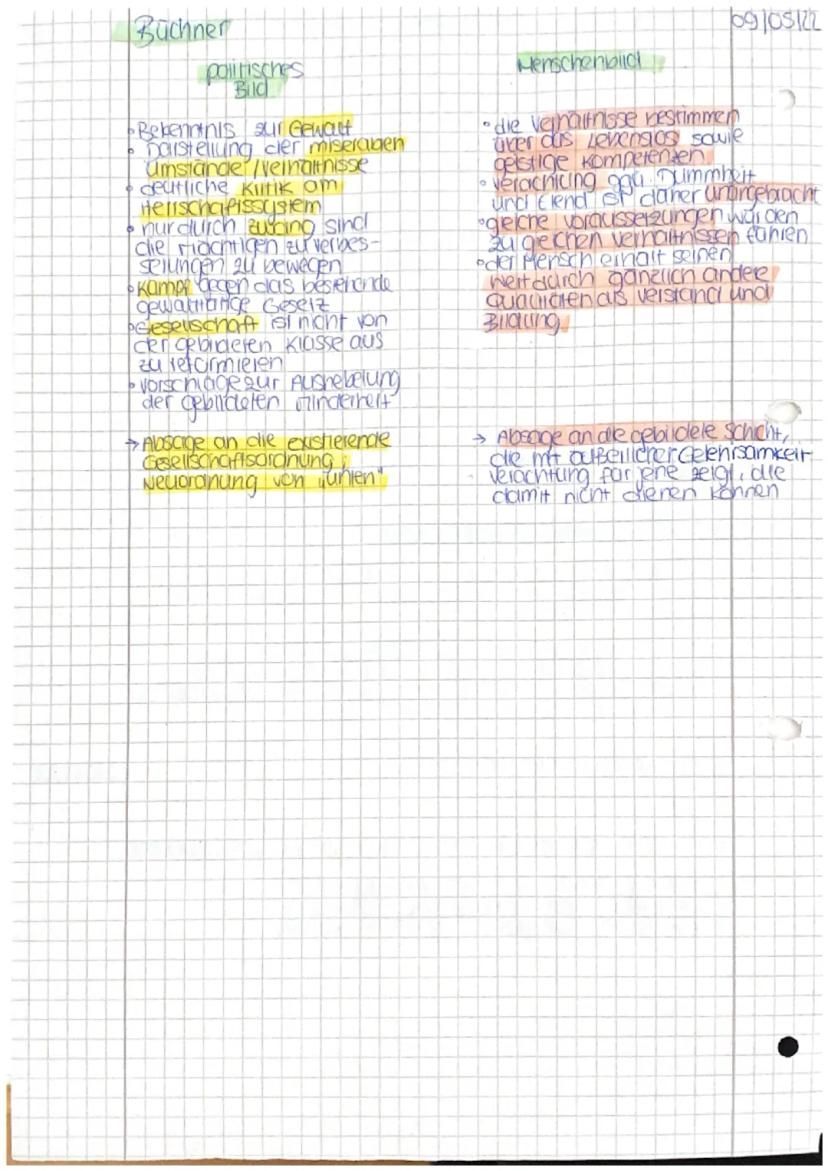 Büchner
09/05/22
politisches
Bild
• Bekenntnis zur Gewalt
• Darstellung der miserablen
Umstände/Verhältnisse
• deutliche Kritik am
Herrschaftssystem
• nur durch Zwang sind
die Mächtigen zu Verbes-
serungen zu bewegen
• Kampf gegen das bestehende
gewalttätige Gesetz
• Gesellschaft ist nicht von
der gebildeten Klasse aus
zu reformieren
• Vorschläge zur Aushebelung
der gebildeten Minderheit
→ Absage an die existierende
Gesellschaftsordnung;
Neuordnung von „unten"
Menschenbild
• die Verhältnisse bestimmen
über das Lebenslos sowie
geistige Kompetenzen
• Verachtung ggü. Dummheit
und Elend ist daher unangebracht
• gleiche Voraussetzungen würden
zu gleichen Verhältnissen führen
• der Mensch erhält seinen
Wert durch gänzlich andere
Qualitäten als Verstand und
Bildung
→ Absage an die gebildete Schicht,
die mit äußerlicher Gelehrsamkeit
Verachtung für jene zeigt, die
damit nicht dienen können